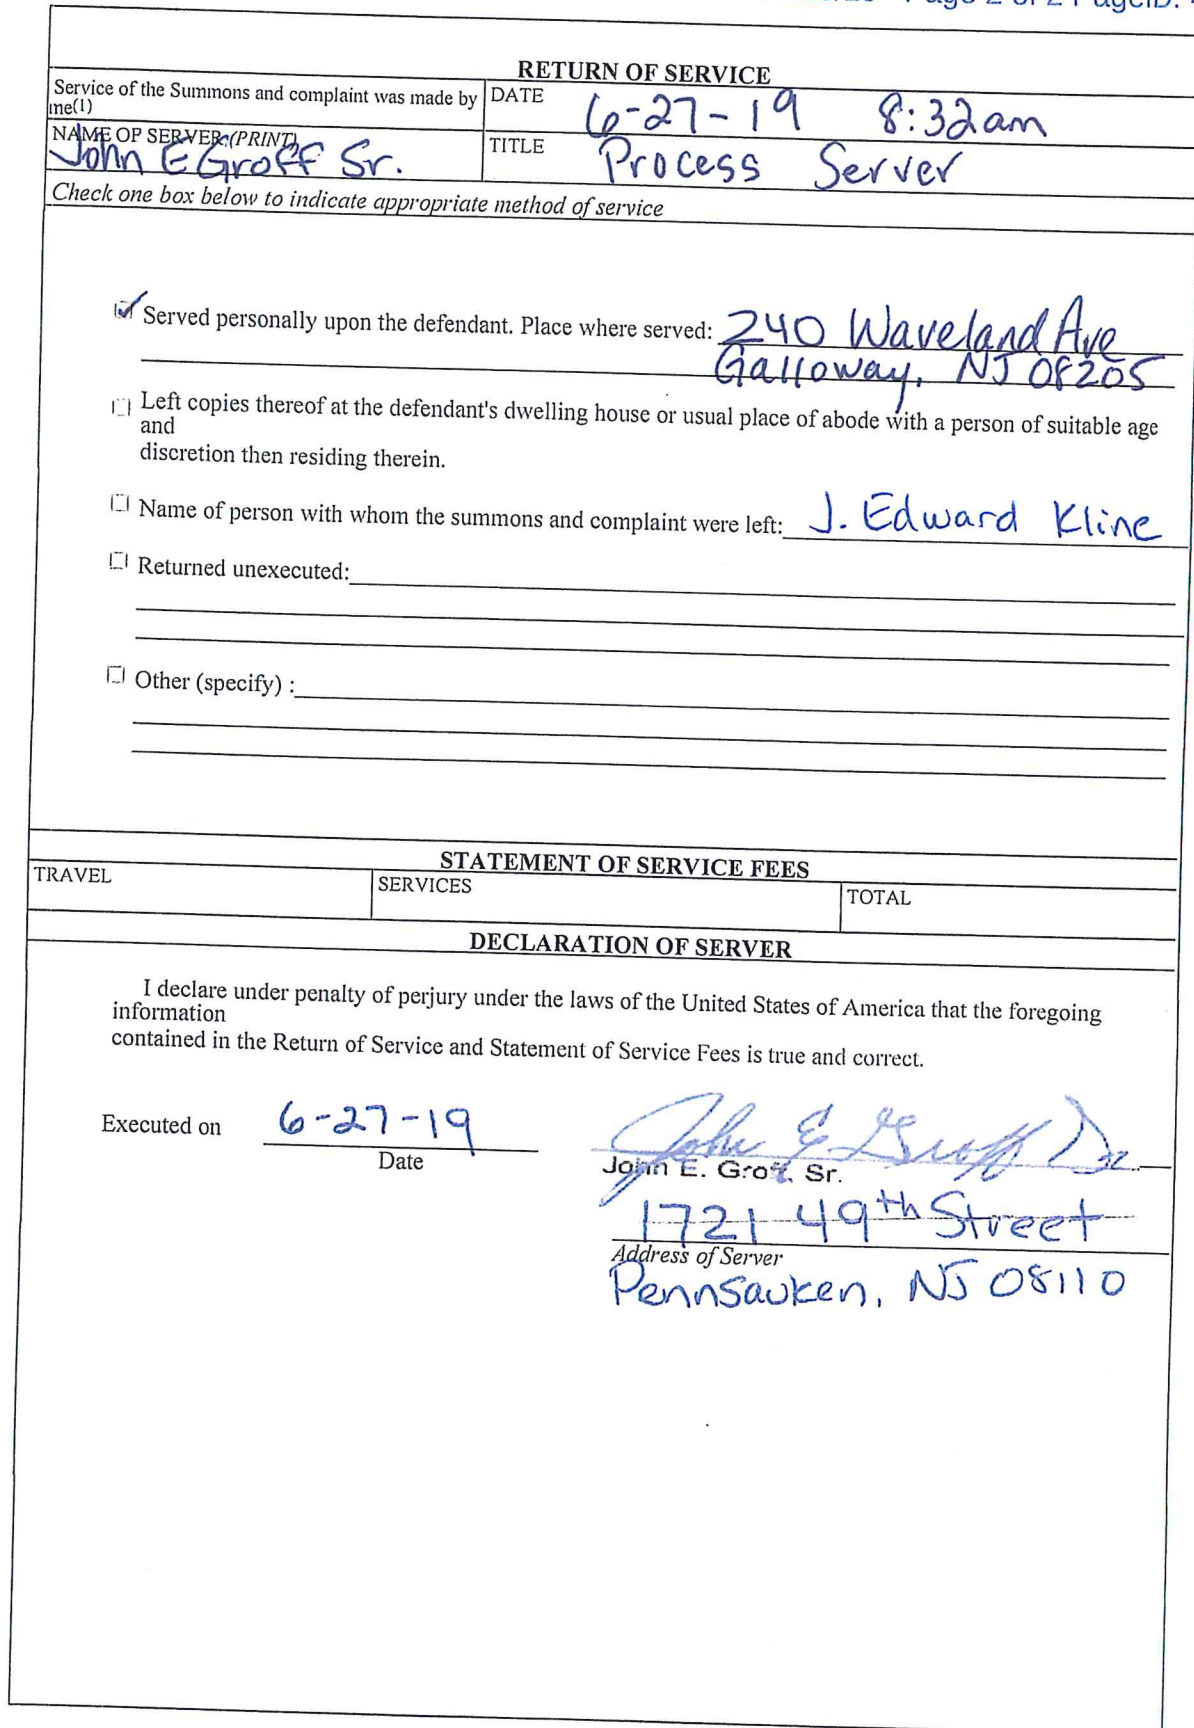 Page 2 of 2 PageID:
RETURN OF SERVICE
Service of the Summons and complaint was made by me(1)
DATE 6-27-19 8:32am
NAME OF SERVER (PRINT)
John E Groff Sr.
TITLE Process Server
Check one box below to indicate appropriate method of service
Served personally upon the defendant. Place where served: 240 Waveland Ave
Galloway, NJ 08205
Left copies thereof at the defendant's dwelling house or usual place of abode with a person of suitable age
and
discretion then residing therein.
Name of person with whom the summons and complaint were left: J. Edward Kline
Returned unexecuted:
Other (specify) :
STATEMENT OF SERVICE FEES
TRAVEL SERVICES TOTAL
DECLARATION OF SERVER
I declare under penalty of perjury under the laws of the United States of America that the foregoing
information
contained in the Return of Service and Statement of Service Fees is true and correct.
Executed on 6-27-19
Date
John E Groff Sr.
John E. Groff, Sr.
1721 49th Street
Address of Server
Pennsauken, NJ 08110